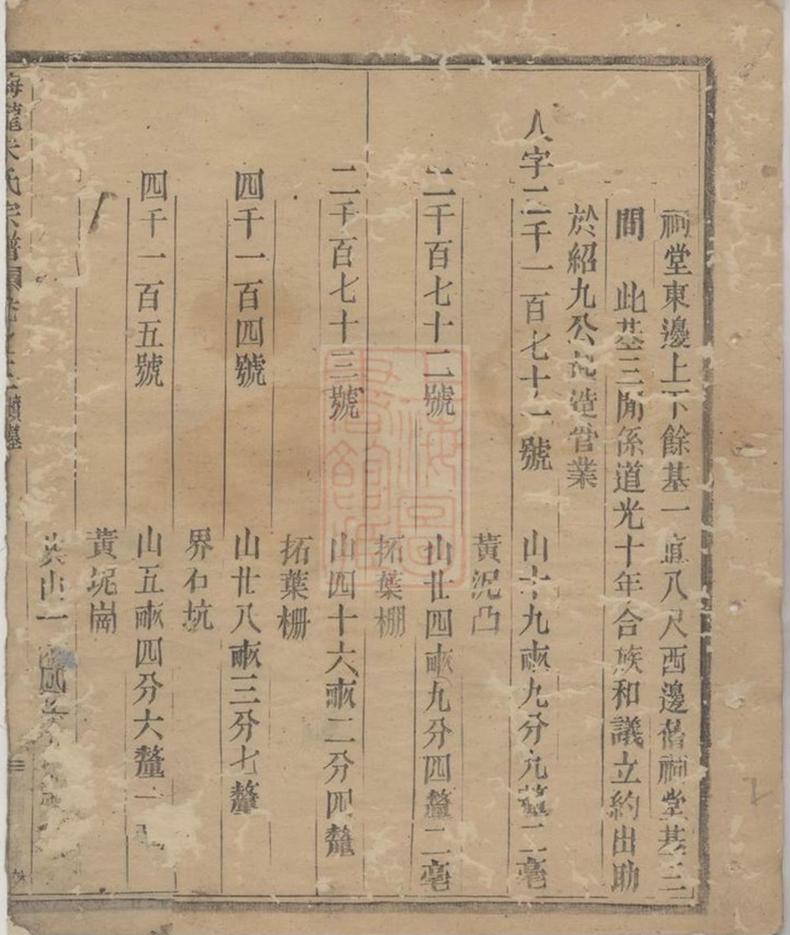 祠堂東邊上下餘基一直八尺西邊舊祠堂基三
間 此基三間係道光十年合族和議立約出助
於紹九公起造管業
人字二千一百七十一號 山十九畝九分九釐二毫
黃泥凸
二千百七十二號 山廿四畝九分四釐二毫
拓葉棚
二千百七十三號 山四十六畝二分四釐
拓葉柵
四千一百四號 山廿八畝三分七釐
界石坑
四千一百五號 山五畝四分六釐一
黃坭崗
山一
氏宗譜